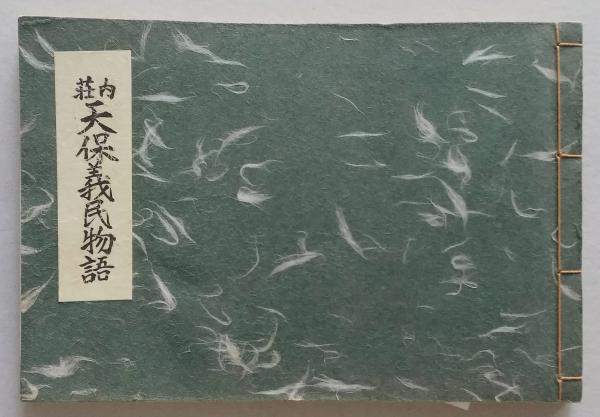 荘内
天保義民物語